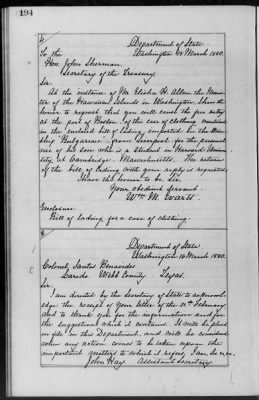 194
Department of State
Washington March 1880.
To the
Hon. John Sherman.
Secretary of the Treasury.
Sir,
At the instance of Mr. Elisha H. Allen the Minis-
ter of the Hawaiian Islands in Washington, I have the
honor to request that you will cause the free entry
at the port of Boston of the case of clothing mentioned
in the enclosed bill of lading imported by the steam
ship "Bulgarian" from Liverpool for the personal
use of his son who is a student in Harvard Univer-
sity, at Cambridge, Massachusetts. The return
of the bill of lading with your reply is requested.
I have the honor to be Sir,
Your obedient servant.
Wm. M. Evarts.
Enclosure:
Bill of lading for a case of clothing.
Department of State
Washington March 1880.
Colonel Santos Benavides
Laredo Webb County Texas.
Sir,
I am directed by the Secretary of State to acknowl-
edge the receipt of your letter of the February
and to thank you for the information and for
the suggestion which it contains. It will be placed
on file in this Department, and will be considered
when any action comes to be taken upon the
important matters to which it refers. I am Sir,
John Hay Assistant Secretary